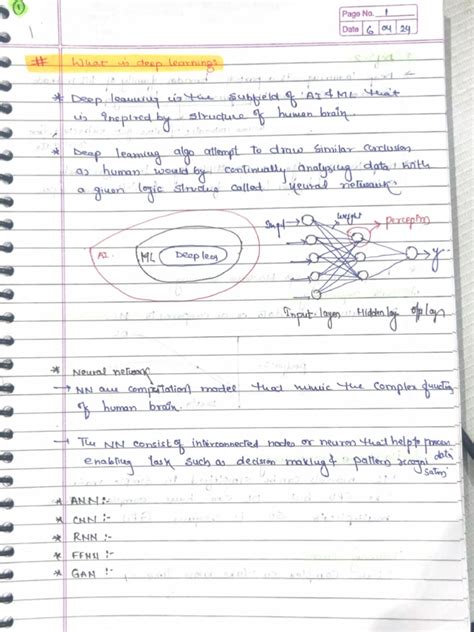 1
Page No. 1
Date 6 04 24
# What is deep learning?
* Deep learning is the subfield of AI & ML that
is inspired by structure of human brain.
* Deep learning algo attempt to draw similar conclusion
as human would by continually analyzing data with
a given logic strucure called neural network.
AI. ML Deep lern
Input weight perceptron
y
Input layer Hidden lay o/p lay
* Neural network
→ NN are computational model that mimic the complex function
of human brain.
→ The NN consist of interconnected nodes or neuron that help to process data
enabling task such as decision making & pattern recogni
* ANN :-
* CNN :-
* RNN :-
* GAN :-